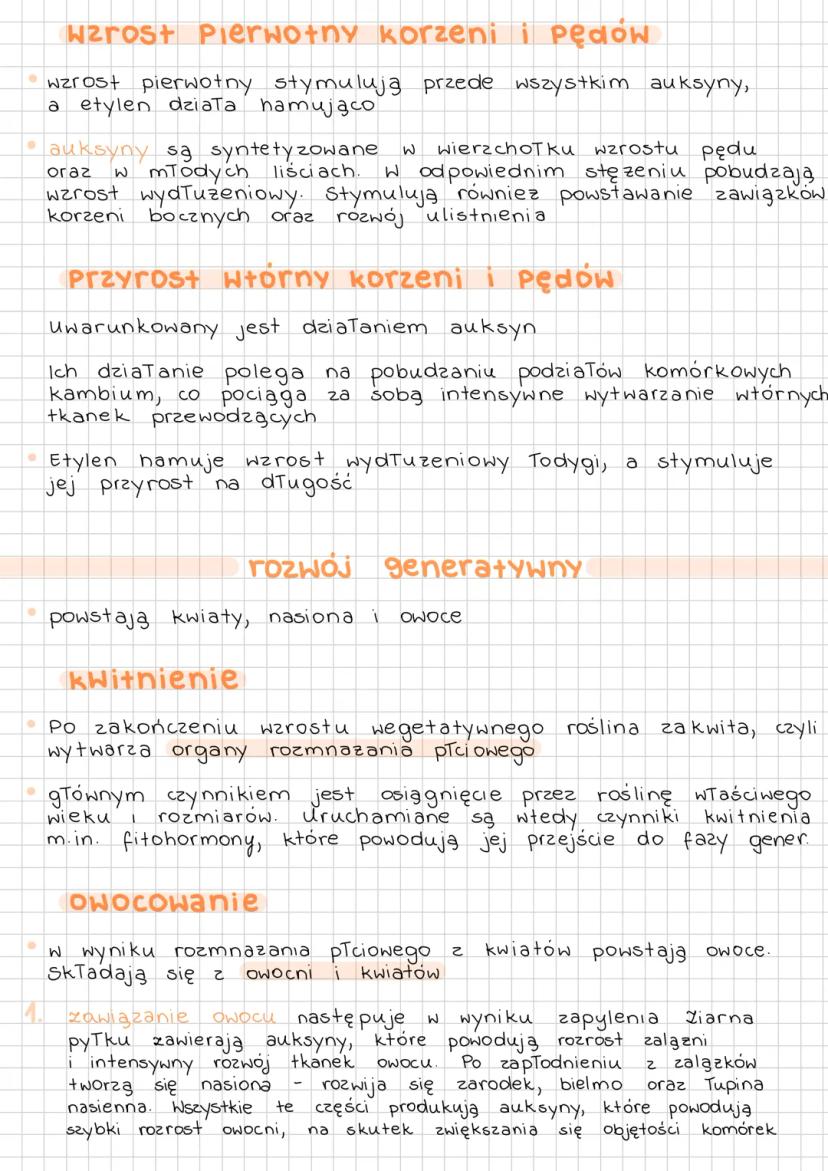 wzrost pierwotny korzeni i pędów
• wzrost pierwotny stymulują przede wszystkim auksyny,
a etylen działa hamująco
• auksyny są syntetyzowane w wierzchołku wzrostu pędu
oraz w młodych liściach. W odpowiednim stężeniu pobudzają
wzrost wydłużeniowy. Stymulują również powstawanie zawiązków
korzeni bocznych oraz rozwój ulistnienia
przyrost wtórny korzeni i pędów
Uwarunkowany jest działaniem auksyn
Ich działanie polega na pobudzaniu podziałów komórkowych
kambium, co pociąga za sobą intensywne wytwarzanie wtórnych
tkanek przewodzących
• Etylen hamuje wzrost wydłużeniowy łodygi, a stymuluje
jej przyrost na długość
rozwój generatywny
• powstają kwiaty, nasiona i owoce
kwitnienie
• Po zakończeniu wzrostu wegetatywnego roślina zakwita, czyli
wytwarza organy rozmnażania płciowego
• głównym czynnikiem jest osiągnięcie przez roślinę właściwego
wieku i rozmiarów. Uruchamiane są wtedy czynniki kwitnienia
m.in. fitohormony, które powodują jej przejście do fazy gener.
owocowanie
• w wyniku rozmnażania płciowego z kwiatów powstają owoce.
Składają się z owocni i kwiatów
1. zawiązanie owocu następuje w wyniku zapylenia Ziarna
pyłku zawierają auksyny, które powodują rozrost zalążni
i intensywny rozwój tkanek owocu. Po zapłodnieniu z zalążków
tworzą się nasiona - rozwija się zarodek, bielmo oraz łupina
nasienna. Wszystkie te części produkują auksyny, które powodują
szybki rozrost owocni, na skutek zwiększania się objętości komórek